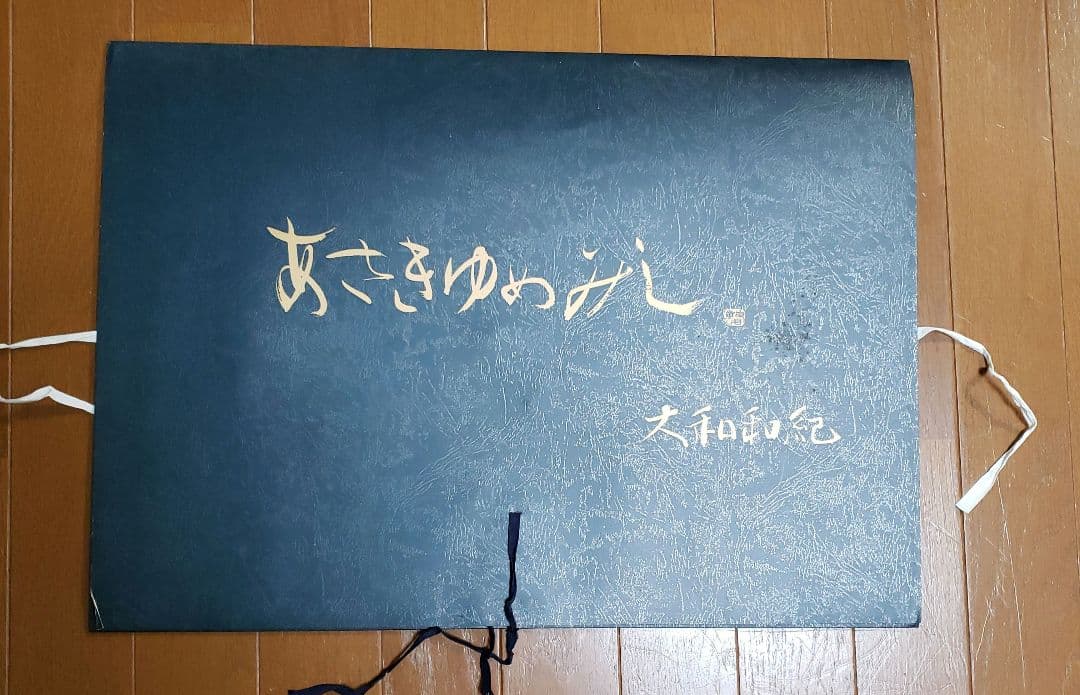 あさきゆめみし
大和和紀